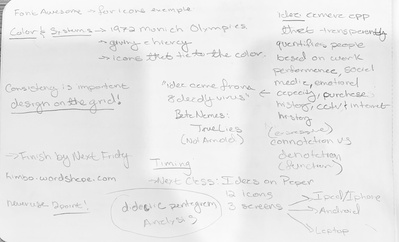 Font Awesome → for icons example
Color & Systems → 1972 Munich Olympics
→ icons that tie to the color.
Consistency is important
design on the grid!
→ Finish by Next Friday
Never use 2 point!
idea: remove app
that transparently
quantifies people
based on work
performance, social
media, emotional
capacity, purchase
history, cctv & internet
history
connotation vs
denotation
"idea came from
a deadly virus"
Beta Names:
True Lies
(Not Arnold)
Timing
→ Next Class: Ideas on Paper
12 icons
3 screens
Ipad/Iphone
Android
Laptop
pentagram
Analysis